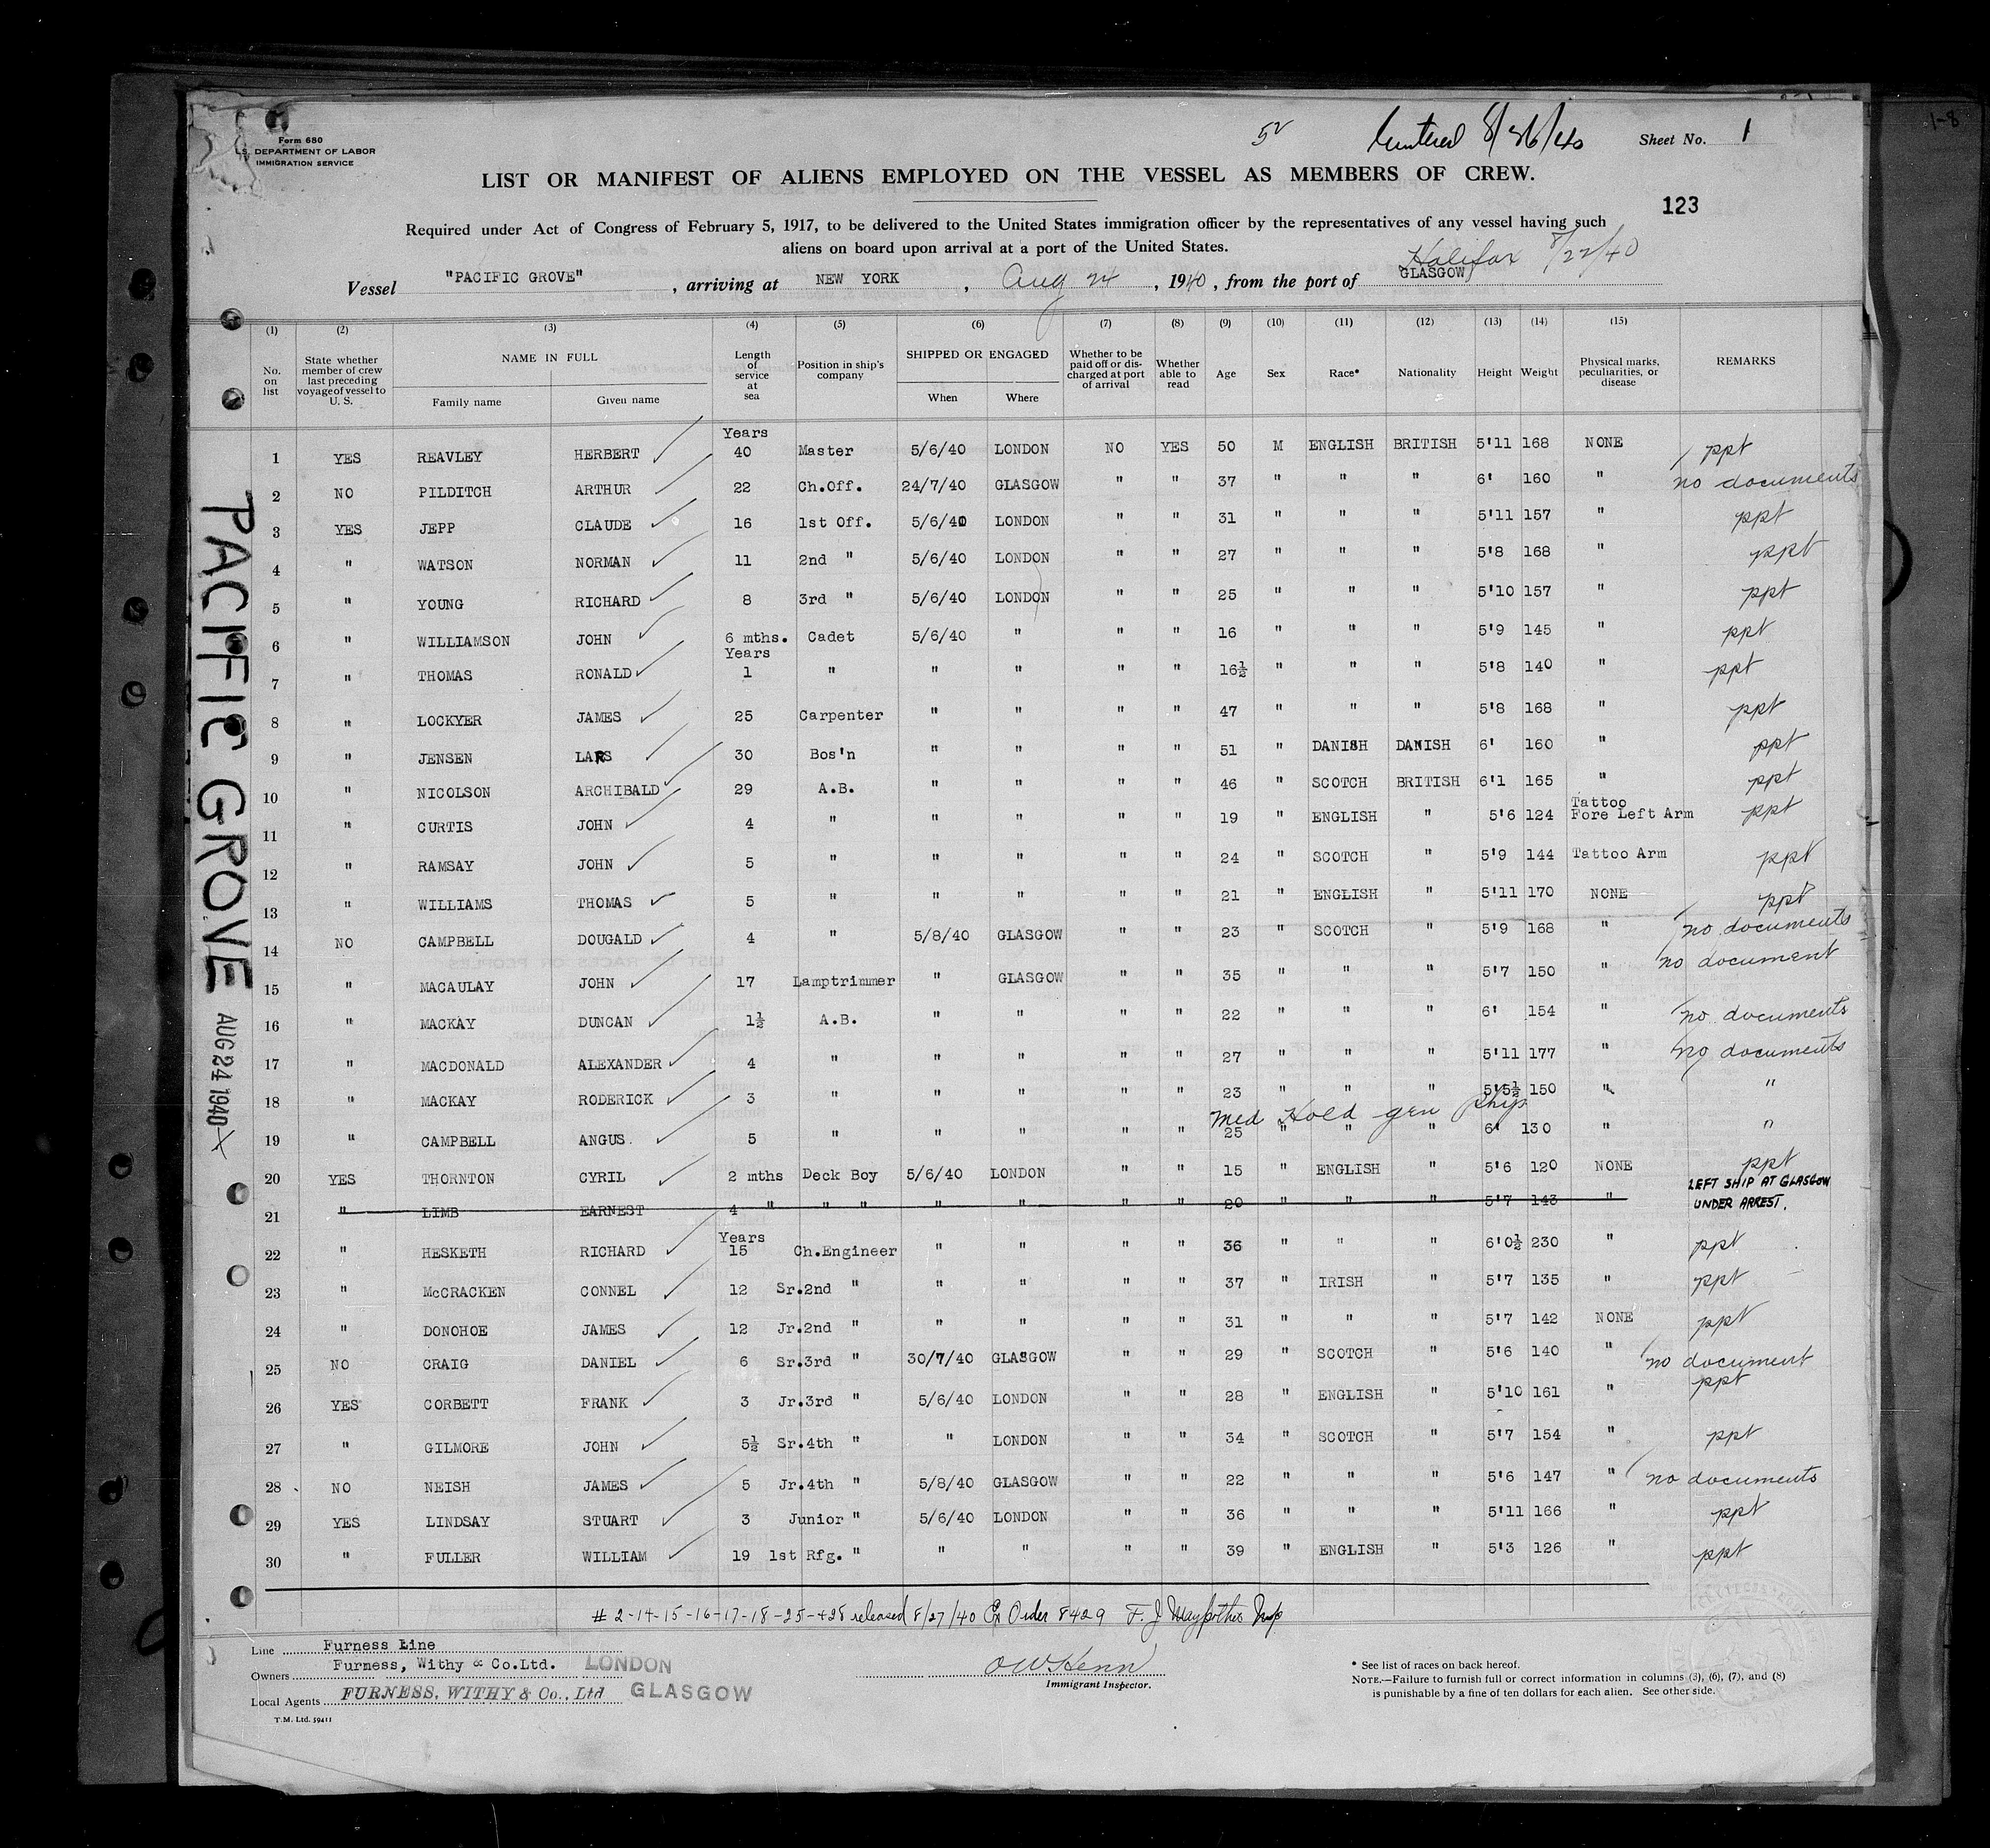 Form 680
U.S. DEPARTMENT OF LABOR
IMMIGRATION SERVICE
8/26/40
Sheet No. 1
1-8
LIST OR MANIFEST OF ALIENS EMPLOYED ON THE VESSEL AS MEMBERS OF CREW.
123
Required under Act of Congress of February 5, 1917, to be delivered to the United States immigration officer by the representatives of any vessel having such
aliens on board upon arrival at a port of the United States.
Halifax 8/22/40
Vessel "PACIFIC GROVE", arriving at NEW YORK, Aug 24, 1940, from the port of GLASGOW
(1) (2) (3) (4) (5) (6) (7) (8) (9) (10) (11) (12) (13) (14) (15)
No. on list State whether member of crew last preceding voyage of vessel to U. S. NAME IN FULL Family name Given name Length of service at sea Position in ship's company SHIPPED OR ENGAGED When Where Whether to be paid off or discharged at port of arrival Whether able to read Age Sex Race* Nationality Height Weight Physical marks, peculiarities, or disease REMARKS
1 YES REAVLEY HERBERT Years 40 Master 5/6/40 LONDON NO YES 50 M ENGLISH BRITISH 5'11 168 NONE ppt
2 NO PILDITCH ARTHUR 22 Ch.Off. 24/7/40 GLASGOW " " 37 " " " 6' 160 " no documents
3 YES JEPP CLAUDE 16 1st Off. 5/6/40 LONDON " " 31 " " " 5'11 157 " ppt
4 " WATSON NORMAN 11 2nd " 5/6/40 LONDON " " 27 " " " 5'8 168 " ppt
5 " YOUNG RICHARD 8 3rd " 5/6/40 LONDON " " 25 " " " 5'10 157 " ppt
6 " WILLIAMSON JOHN 6 mths. Cadet 5/6/40 " " " 16 " " " 5'9 145 " ppt
7 " THOMAS RONALD Years 1 " " " " " 16½ " " " 5'8 140 " ppt
8 " LOCKYER JAMES 25 Carpenter " " " " 47 " " " 5'8 168 " ppt
9 " JENSEN LARS 30 Bos'n " " " " 51 " DANISH DANISH 6' 160 " ppt
10 " NICOLSON ARCHIBALD 29 A.B. " " " " 46 " SCOTCH BRITISH 6'1 165 " ppt
11 " CURTIS JOHN 4 " " " " " 19 " ENGLISH " 5'6 124 Tattoo Fore Left Arm ppt
12 " RAMSAY JOHN 5 " " " " " 24 " SCOTCH " 5'9 144 Tattoo Arm ppt
13 " WILLIAMS THOMAS 5 " " " " " 21 " ENGLISH " 5'11 170 NONE ppt
14 NO CAMPBELL DOUGALD 4 " 5/8/40 GLASGOW " " 23 " SCOTCH " 5'9 168 " no documents
15 " MACAULAY JOHN 17 Lamptrimmer " GLASGOW " " 35 " " " 5'7 150 " no document
16 " MACKAY DUNCAN 1½ A.B. " " " " 22 " " " 6' 154 " no documents
17 " MACDONALD ALEXANDER 4 " " " " " 27 " " " 5'11 177 " no documents
18 " MACKAY RODERICK 3 " " " " " 23 " " " 5'5½ 150 " "
Med Hold gen phys
19 " CAMPBELL ANGUS. 5 " " " " " 25 " " " 6' 130 " "
20 YES THORNTON CYRIL 2 mths Deck Boy 5/6/40 LONDON " " 15 " ENGLISH " 5'6 120 NONE ppt
21 " LIMB EARNEST 4 " " " " " " " 20 " " " 5'7 143 " LEFT SHIP AT GLASGOW UNDER ARREST.
22 " HESKETH RICHARD Years 15 Ch.Engineer " " " " 36 " " " 6'0½ 230 " ppt
23 " McCRACKEN CONNEL 12 Sr.2nd " " " " " 37 " IRISH " 5'7 135 " ppt
24 " DONOHOE JAMES 12 Jr.2nd " " " " " 31 " " " 5'7 142 NONE ppt
25 NO CRAIG DANIEL 6 Sr.3rd " 30/7/40 GLASGOW " " 29 " SCOTCH " 5'6 140 " no document
26 YES CORBETT FRANK 3 Jr.3rd " 5/6/40 LONDON " " 28 " ENGLISH " 5'10 161 " ppt
27 " GILMORE JOHN 5½ Sr.4th " " LONDON " " 34 " SCOTCH " 5'7 154 " ppt
28 NO NEISH JAMES 5 Jr.4th " 5/8/40 GLASGOW " " 22 " " " 5'6 147 " no documents
29 YES LINDSAY STUART 3 Junior " 5/6/40 LONDON " " 36 " " " 5'11 166 " ppt
30 " FULLER WILLIAM 19 1st Rfg. " " " " " 39 " ENGLISH " 5'3 126 " ppt
PACIFIC GROVE
AUG 24 1940
# 2-14-15-16-17-18-25-+28 released 8/27/40 Ex Order 8429 F. J.
Line Furness Line
Owners Furness, Withy & Co.Ltd. LONDON
Local Agents FURNESS, WITHY & Co., Ltd GLASGOW
T.M. Ltd. 59411
OW Henn
Immigrant Inspector.
* See list of races on back hereof.
NOTE.—Failure to furnish full or correct information in columns (3), (6), (7), and (8)
is punishable by a fine of ten dollars for each alien. See other side.